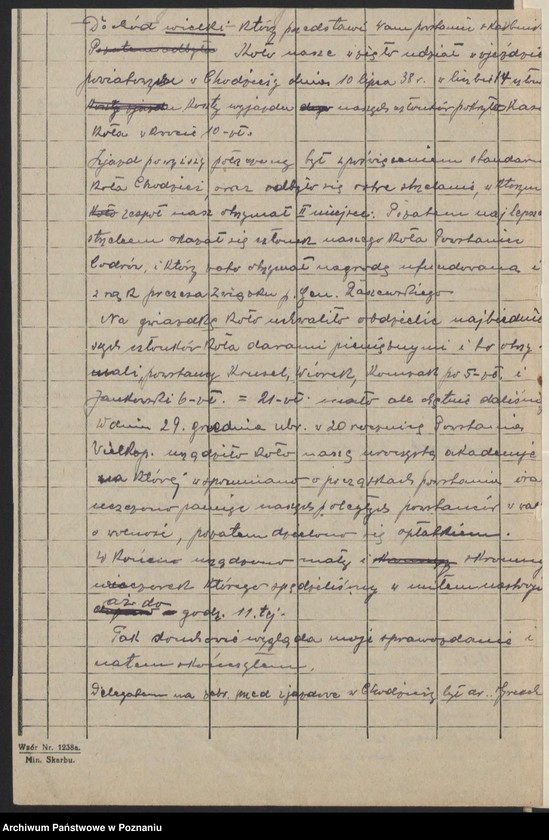 Dochód wielki który przedstawi Wam powstanie skarbnik
Koło nasze wzięło udział w zjeździe
powiatowym w Chodzieży dnia 10 lipca 38 r. w liczbie 14 członk
Koszty wyjazdu naszych członków pokryła Kasa
Koła w kwocie 10 - zł.
Zjazd powyższy połączony był z poświęceniem standaru
Koła Chodzież, oraz odbyło się ostre strzelanie, w którym
zespół nasz otrzymał II miejsce. Pozatem najlepszem
strzelcem okazał się członek naszego Koła Powstaniec
i który to otrzymał nagrodę ufundowaną i
z rąk prezesa Związku p. Gen. Raszewskiego
Na gwiazdkę Koło uchwaliło obdzielić najbiedniej
szych członków Koła darami pieniężnymi i to otrzy-
mali powstańcy Krusel, Wiórek, Konczak po 5 - zł. i
Jankowski 6 - zł. = 21 - zł. mało ale chętnie daliśmy
W dniu 29. grudnia ubr. w 20 rocznicę Powstania
Wielkop. urządziło Koło nasze uroczystą akademję
na której wspomniano o początkach powstania oraz
uczczono pamięć naszych poległych powstańców w walce
o wolność, pozatem dzielono się opłatkiem.
W końcu urządzono mały i skromny
wieczorek którego spędziliśmy w miłem nastroju
aż do godz. 11. tej.
Tak wygląda moje sprawozdanie i
na tem skończyłem.
Delegatem na zebr. w Chodzieży był
Wzór Nr. 1238a.
Min. Skarbu.
Archiwum Państwowe w Poznaniu